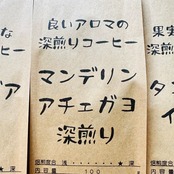 な
ア
良いアロマの
深煎りコーヒー
マンデリン
アチェガヨ
深煎り
焙煎度合 浅・・・・・★深
内容量 100
果実
深煎
タン
イ